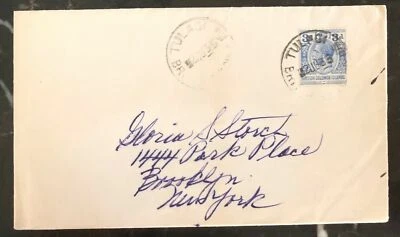 TULAGI
TULAGI
3d
BRITISH SOLOMON ISLANDS
Gloria S Storch
1444 Park Place
Brooklyn
New York